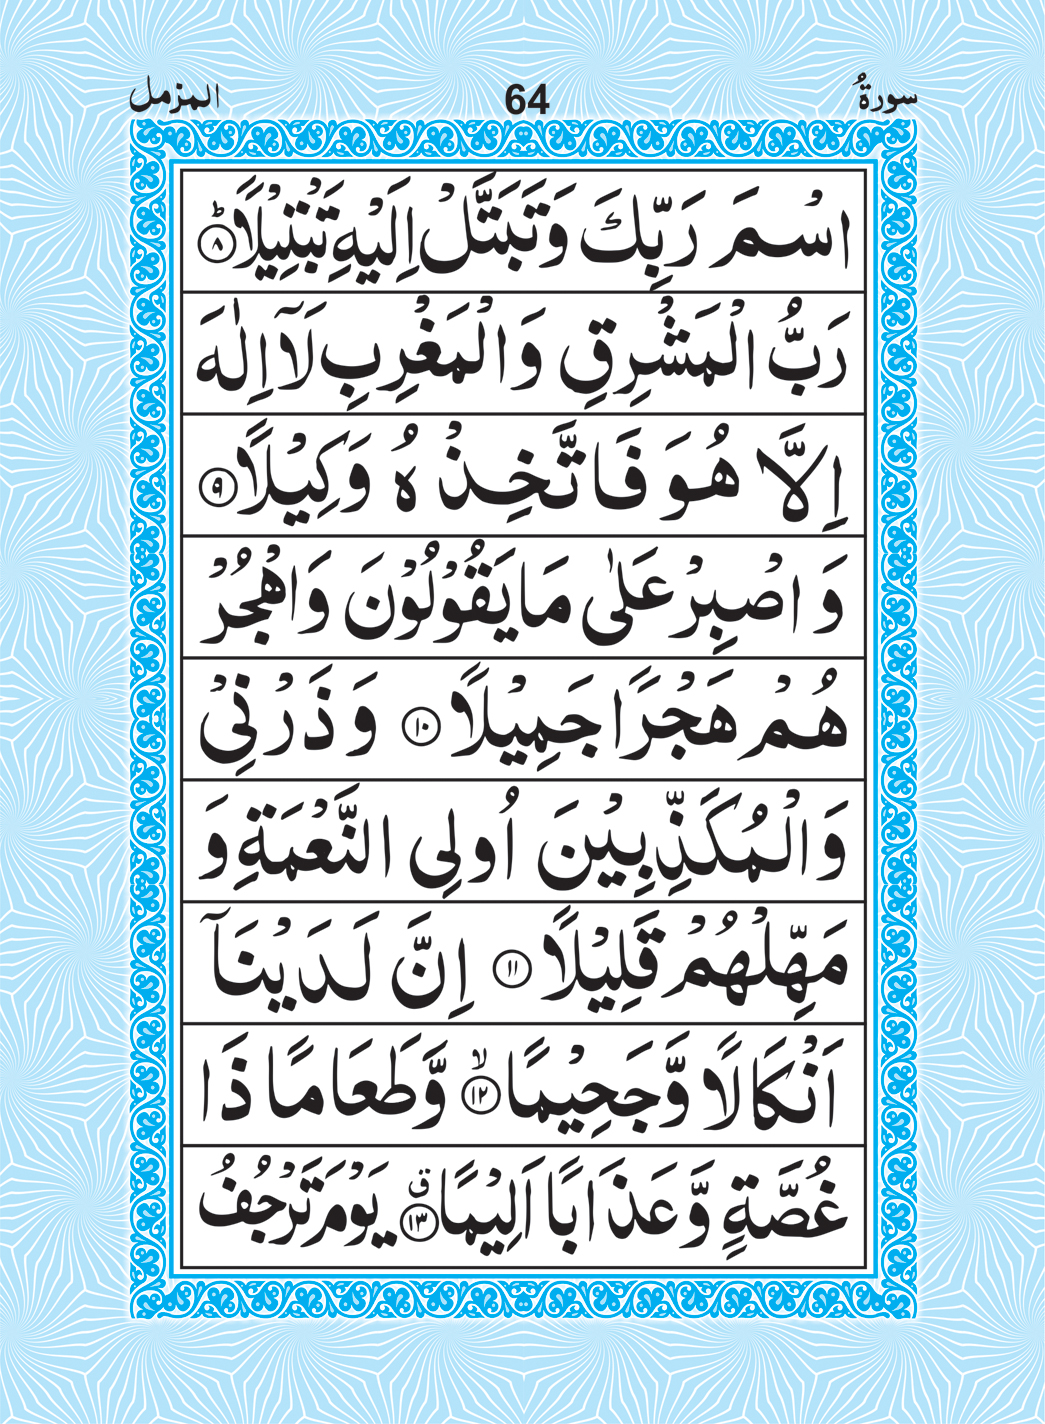 سورةُ 64 المزمل
اسْمَ رَبِّكَ وَتَبَتَّلْ اِلَيْهِ تَبْتِيْلًا ؕ ﴿۸﴾
رَبُّ الْمَشْرِقِ وَالْمَغْرِبِ لَاۤ اِلٰهَ
اِلَّا هُوَ فَاتَّخِذْهُ وَكِيْلًا ﴿۹﴾
وَاصْبِرْ عَلٰى مَا يَقُوْلُوْنَ وَاهْجُرْ
هُمْ هَجْرًا جَمِيْلًا ﴿۱۰﴾ وَذَرْنِيْ
وَالْمُكَذِّبِيْنَ اُولِي النَّعْمَةِ وَ
مَهِّلْهُمْ قَلِيْلًا ﴿۱۱﴾ اِنَّ لَدَيْنَاۤ
اَنْكَالًا وَّجَحِيْمًا ۙ ﴿۱۲﴾ وَّطَعَامًا ذَا
غُصَّةٍ وَّعَذَابًا اَلِيْمًا ۗق ﴿۱۳﴾ يَوْمَ تَرْجُفُ